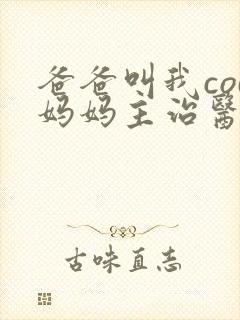 爸爸叫我co
妈妈主治醫
古味直志